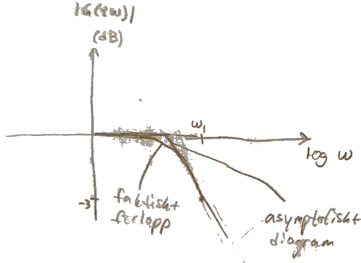 |G(iω)|
(dB)
ω₁
log ω
-3
faktiskt
förlopp
asymptotiskt
diagram